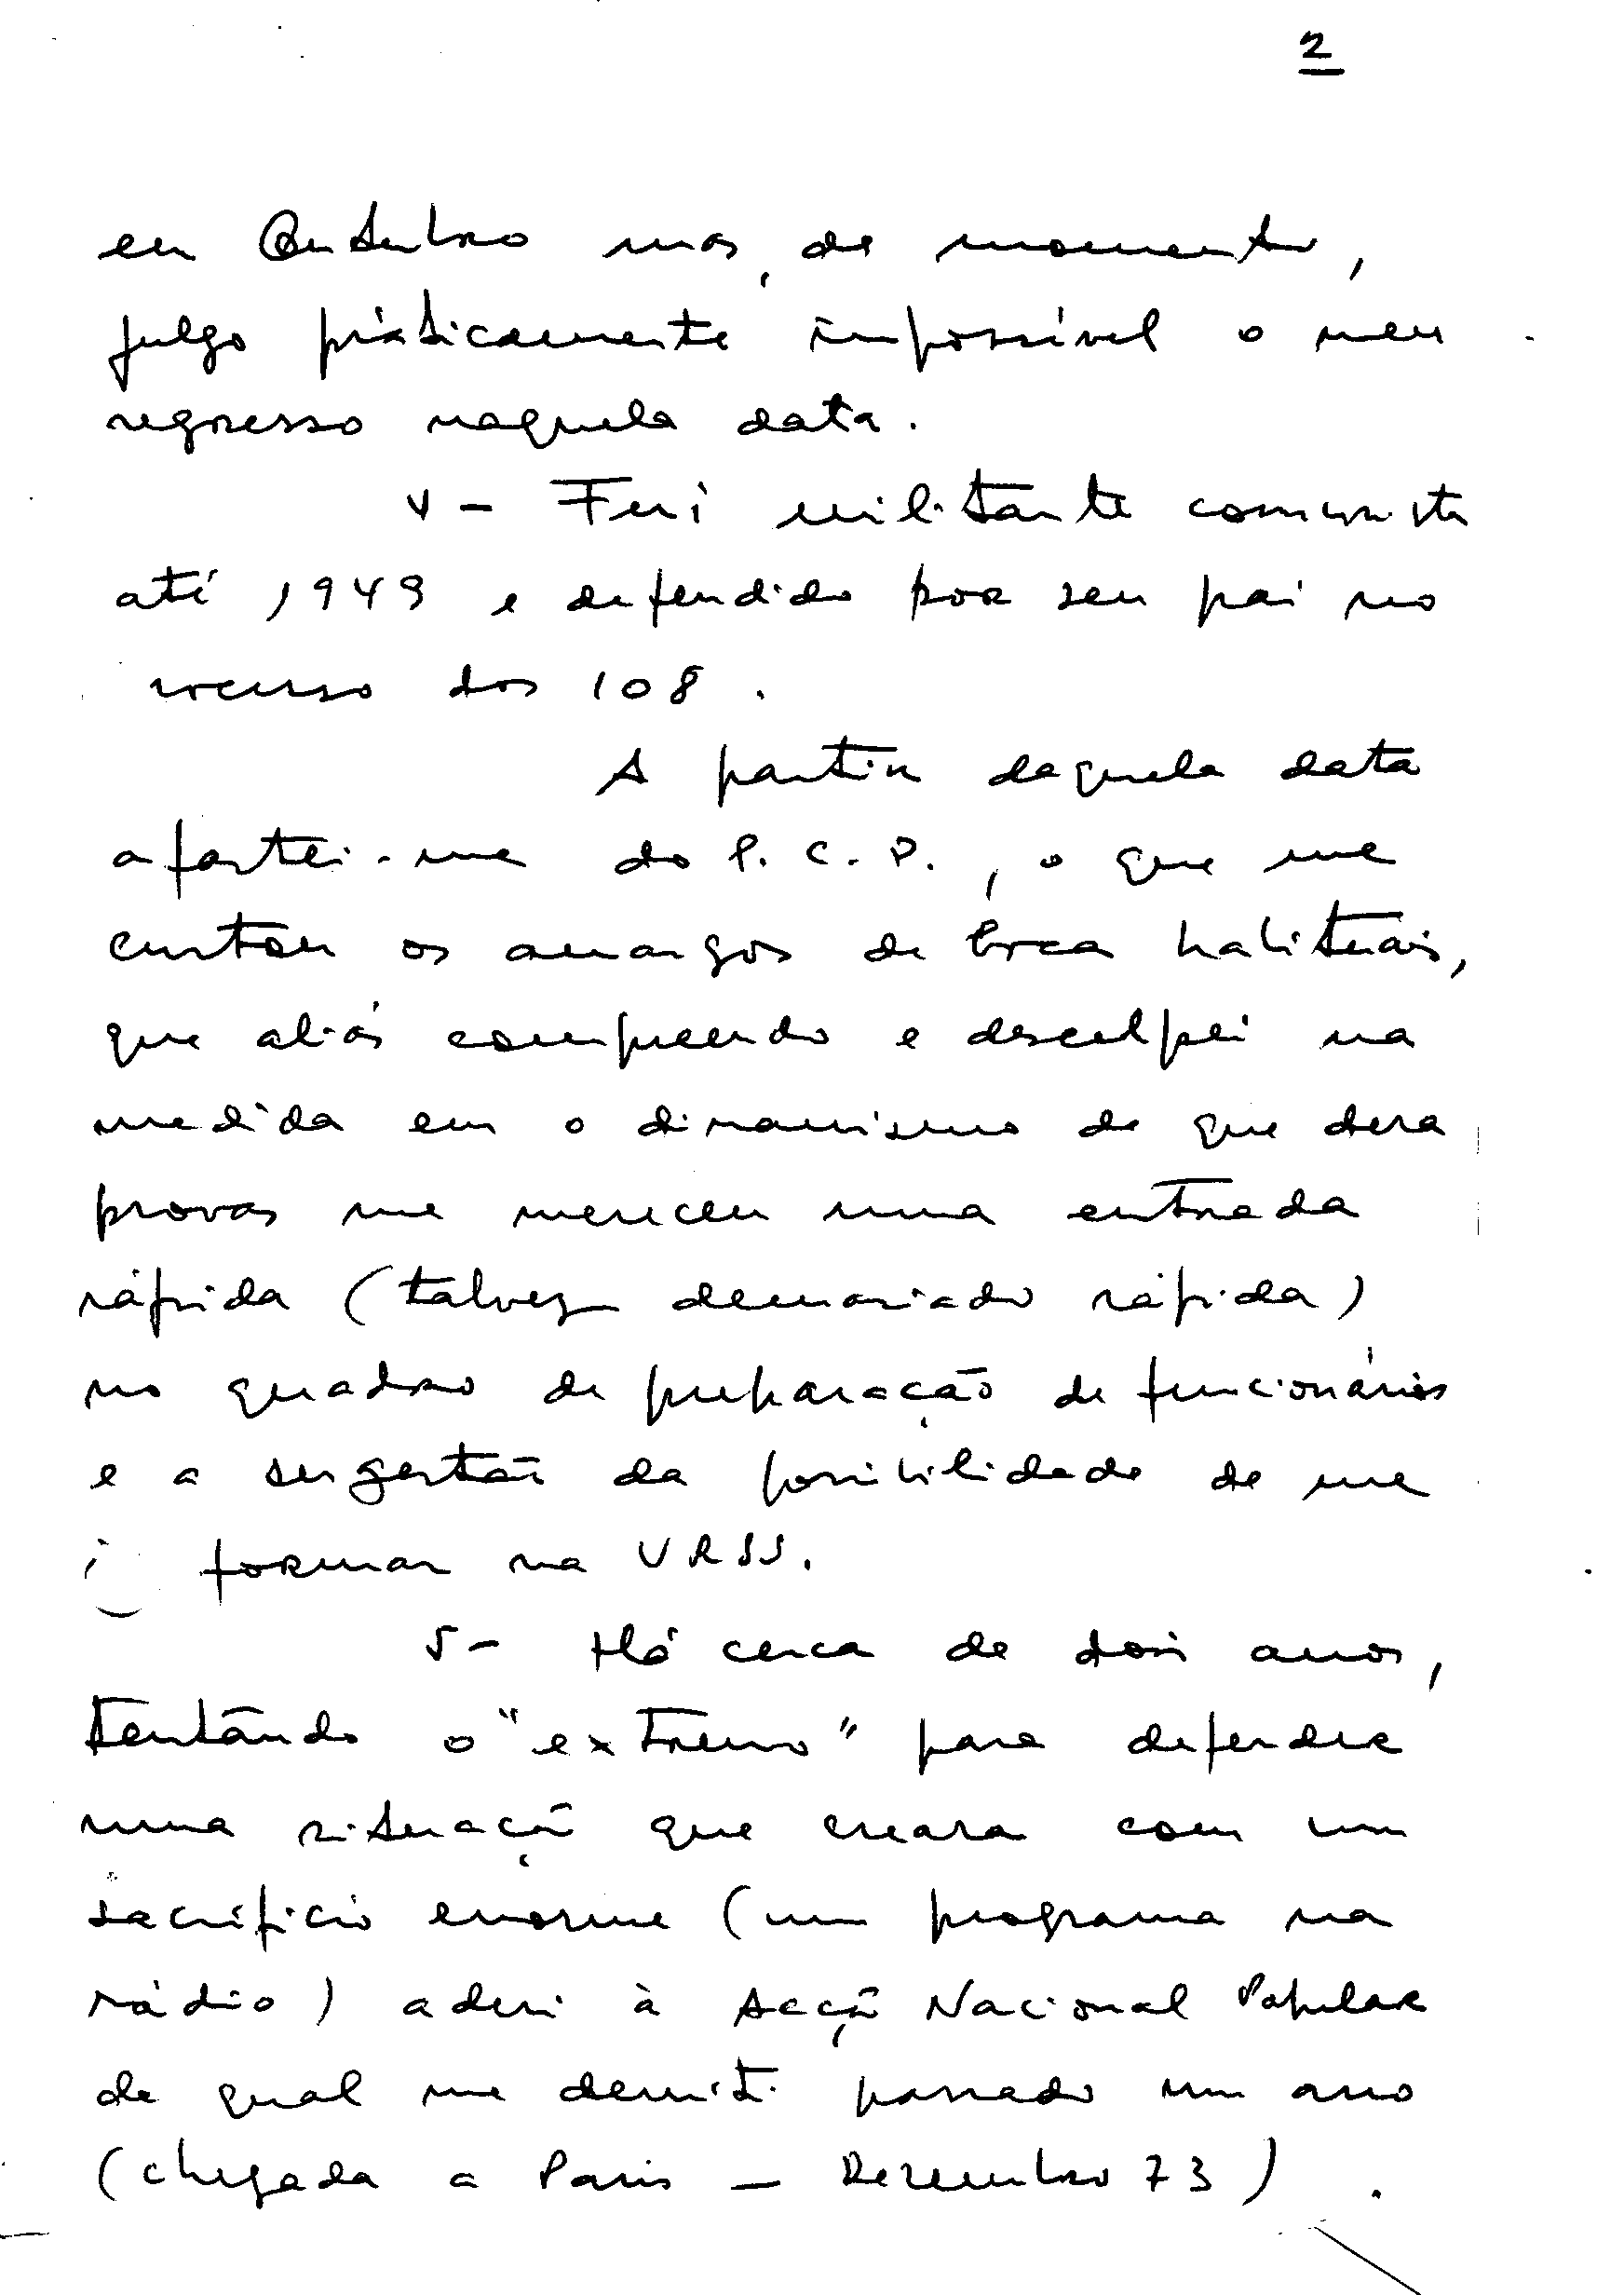 2
em Outubro mas, de momento,
julgo pràticamente impossível o meu
regresso naquela data.
4 - Fui militante comunista
até 1949 e defendido por seu pai no
rocesso dos 108.
A partir daquela data
afastei-me do P.C.P., o que me
custou os amargos de boca habituais,
que aliás compreendo e desculpei na
medida em o dinamismo de que dera
provas me mereceu uma entrada
rápida (talvez demasiado rápida)
no quadro de preparação de funcionários
e a sugestão da possibilidade de me
i formar na URSS.
5 - Há cerca de dois anos,
tentando o "extremo" para defender
uma situação que creara com um
sacrifício enorme (um programa na
rádio) aderi à Acção Nacional Popular
da qual me demiti passado um ano
(chegada a Paris - Dezembro 73).